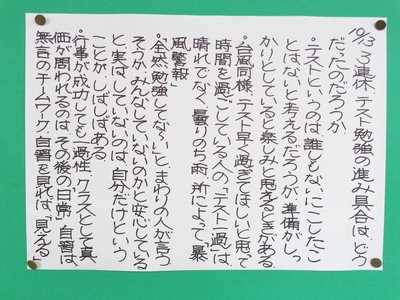 10/13 3連休、テスト勉強の進み具合は、どう
だったのだろうか、
・テストというのは、誰しもないにこしたこ
とはないと考えるだろうが、準備がしっ
かりとしていると楽しみと思えるときがある
・台風同様、テスト早く過ぎてほしいと思って
時間を過ごしている人の、「テスト一過」は、
晴れでなく、曇りのち雨、所によって、「暴
風警報」
・「全然勉強してな〜い」と、まわりの人が言う。
そうか、みんなしていないのかと安心している
と、実は、していないのは、自分だけという
ことが、しばしばある
・行事が成功しても一過性、クラスとして真
価が問われるのは、その後の「日常」自習は、
無言のチームワーク、自習を見れば、「見える」